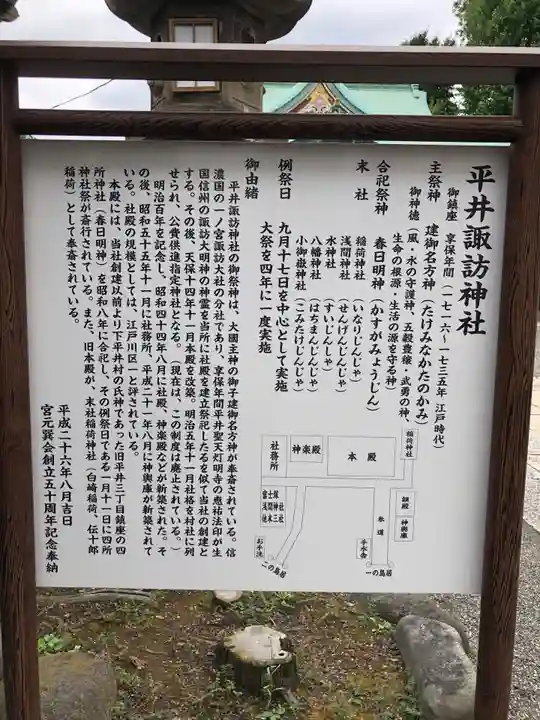 平井諏訪神社
御鎮座　享保年間（一七一六〜一七三五年 江戸時代）
主祭神　建御名方神（たけみなかたのかみ）
御神徳（風・水の守護神、五穀豊穣・武勇の神、
生命の根源・生活の源を守る神）
合祀祭神　春日明神（かすがみょうじん）
末社　稲荷神社（いなりじんじゃ）
浅間神社（せんげんじんじゃ）
水神社（すいじんしゃ）
八幡神社（はちまんじんじゃ）
小御嶽神社（こみたけじんじゃ）
例祭日　九月十七日を中心として実施
大祭を四年に一度実施
御由緒
平井諏訪神社の御祭神は、大國主神の御子建御名方神が奉斎されている。信
濃国の一ノ宮諏訪大社の分社であり、享保年間平井聖天灯明寺の恵祐法印が生
国信州の諏訪大明神の神霊を当所に社殿を建立祭祀したるを似て当社の創建と
する。その後、天保十四年十一月本殿を改築。明治五年十一月社格を村社に列
せられ、公費供進指定神社となる。（現在は、この制度は廃止されている。）
明治百年を記念し、昭和四十四年八月に社殿、神楽殿などが新築された。そ
の後、昭和五十五年十一月に社務所、平成二十一年八月に神輿庫が新築されて
いる。社殿の規模としては、江戸川区一と評されている。
本殿には、当社創建以前より下平井村の氏神であった旧平井三丁目鎮座の四
所神社（春日明神）を昭和八年に合祀し、その例祭日である一月十一日に四所
神社祭が斎行されている。また、旧本殿が、末社稲荷神社（白崎稲荷、伝十郎
稲荷）として奉斎されている。
平成二十六年八月吉日
宮元巽会創立五十周年記念奉納
稲荷神社
本殿
神楽殿
社務所
額殿
神輿庫
参道
手水舎
一の鳥居
富士塚
浅間神社
他末三社
お手洗
二の鳥居